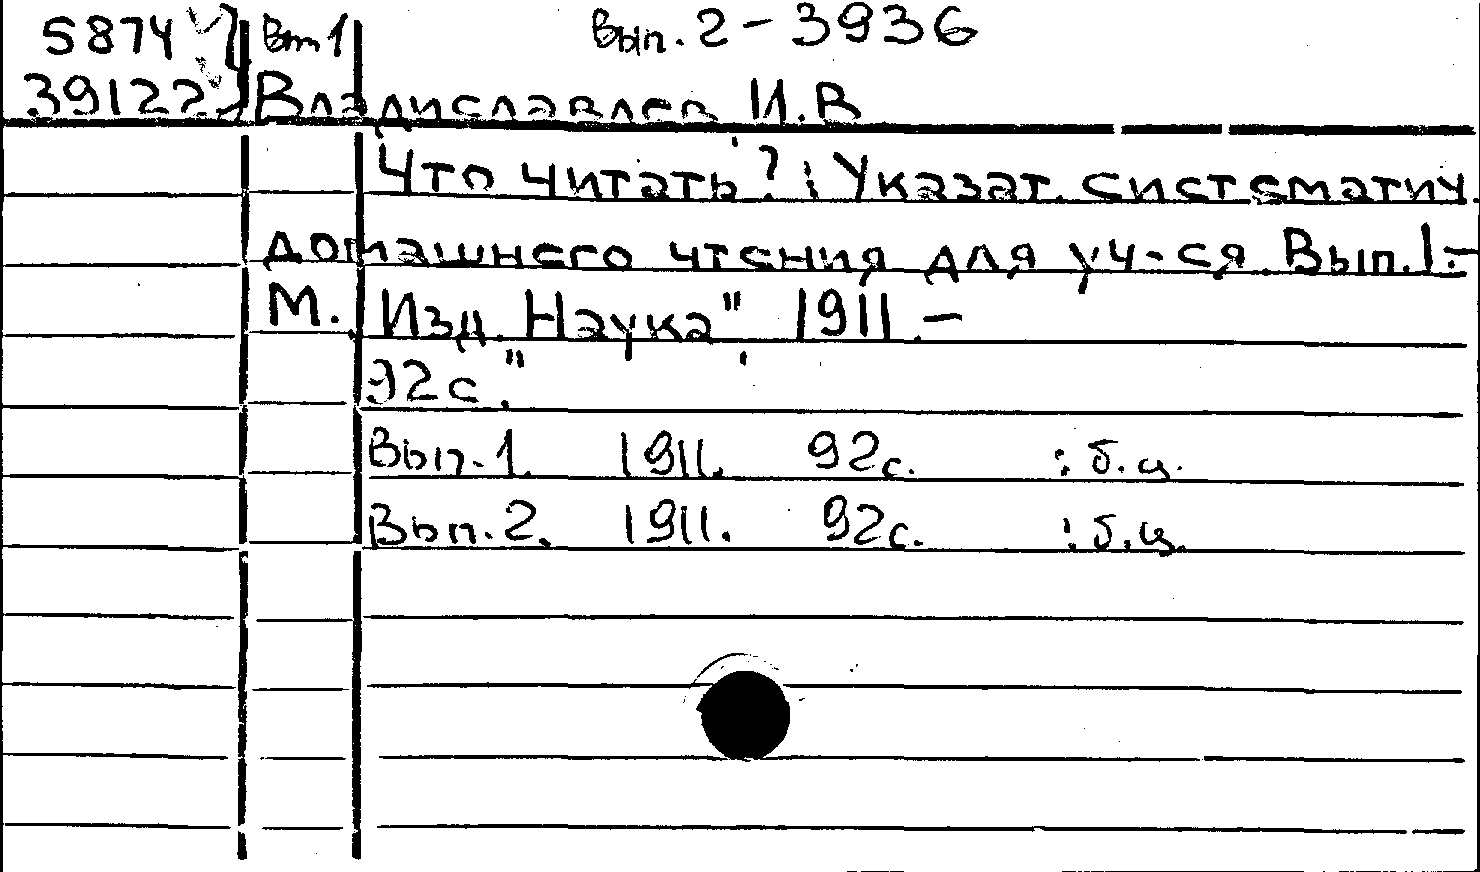 5874 } Вып 1 Вып. 2 - 3936
39122 } Владиславлев И.В
Что читать? : Указат. систематич.
домашнего чтения для уч-ся. Вып.1.-
М., Изд. Наука", 1911.-
92с."
Вып.1. 1911. 92с. : б.ц.
Вып.2. 1911. 92с. : б.ц.